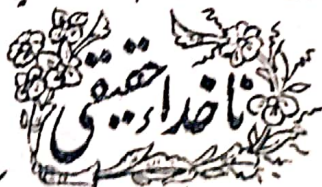 ناخداء حقیقی